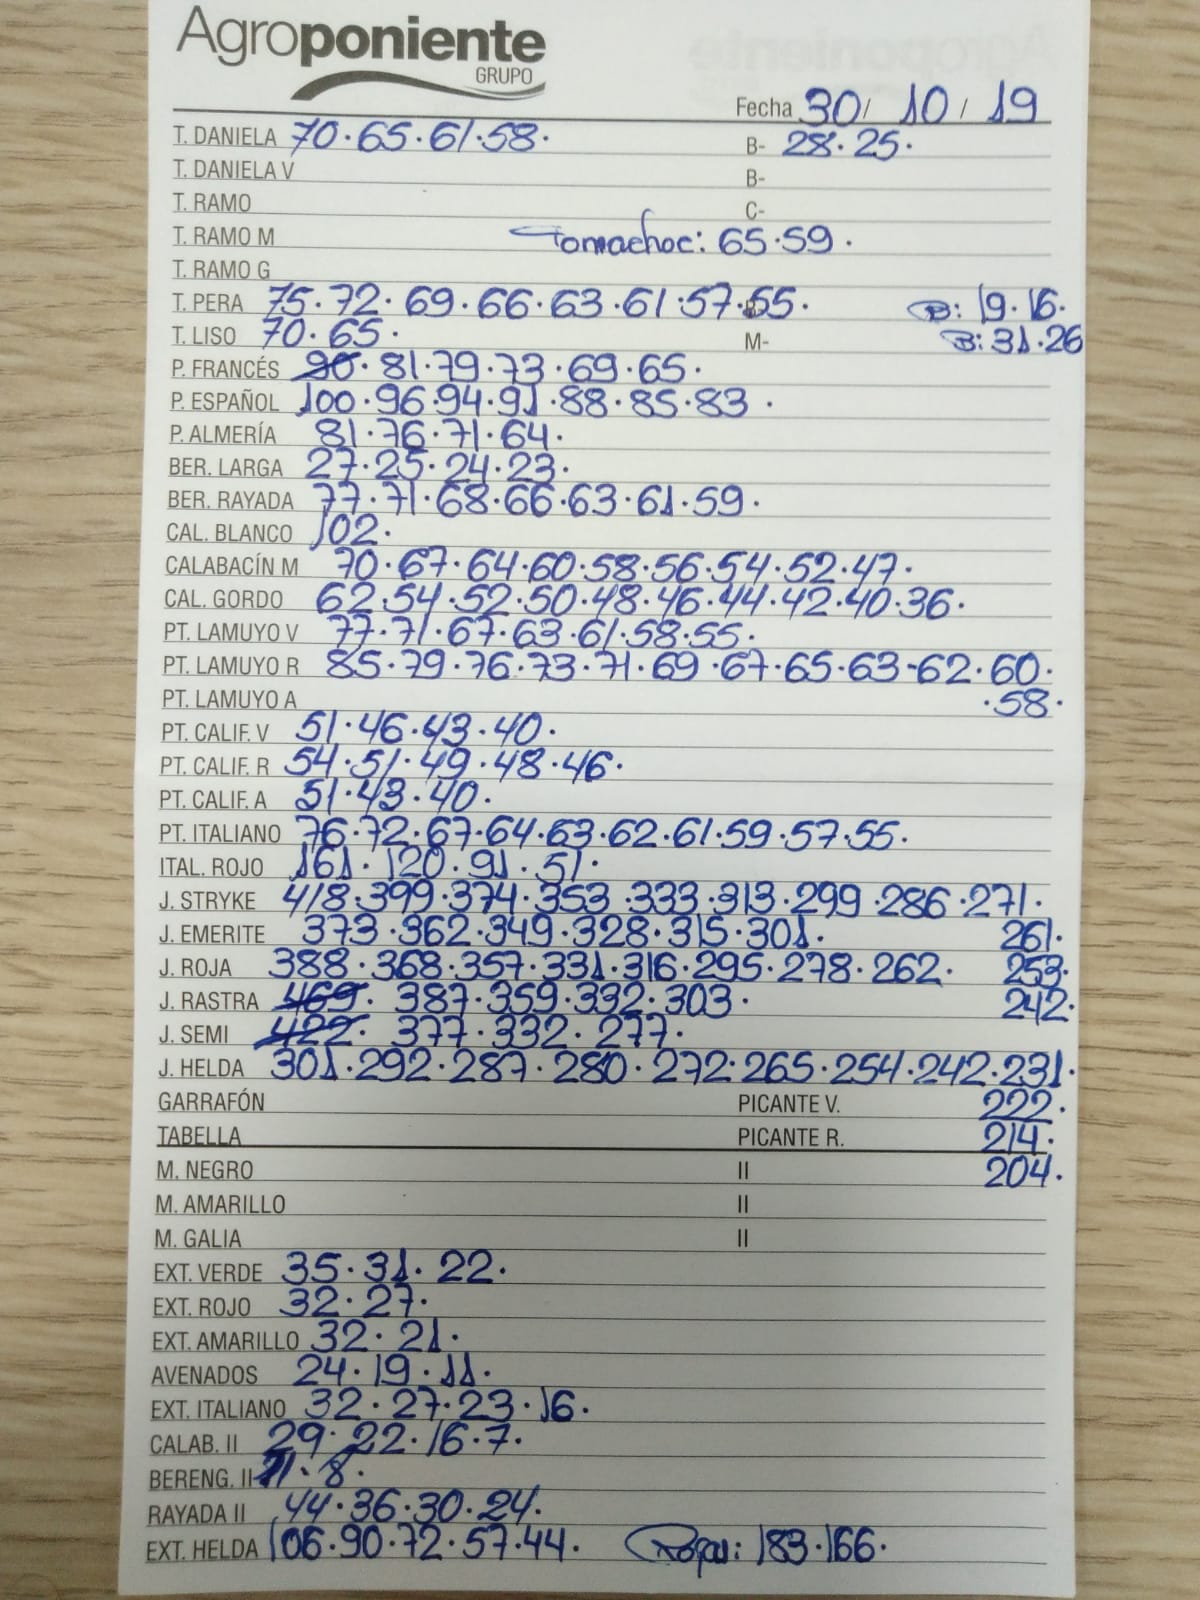 Agroponiente
GRUPO
Fecha 30/ 10 / 19
T. DANIELA 70·65·61·58· B- 28·25·
T. DANIELA V B-
T. RAMO C-
T. RAMO M Tomachoc: 65·59·
T. RAMO G
T. PERA 75·72·69·66·63·61·57·55· B: 19·16·
T. LISO 70·65· M- B: 31·26
P. FRANCÉS 90· 81·79·73·69·65·
P. ESPAÑOL 100·96·94·91·88·85·83·
P. ALMERÍA 81·76·71·64·
BER. LARGA 27·25·24·23·
BER. RAYADA 77·71·68·66·63·61·59·
CAL. BLANCO 102·
CALABACÍN M 70·67·64·60·58·56·54·52·47·
CAL. GORDO 62·54·52·50·48·46·44·42·40·36·
PT. LAMUYO V 77·71·67·63·61·58·55·
PT. LAMUYO R 85·79·76·73·71·69·67·65·63-62·60·
PT. LAMUYO A ·58·
PT. CALIF. V 51·46·43·40·
PT. CALIF. R 54·51·49·48·46·
PT. CALIF. A 51·43·40·
PT. ITALIANO 76·72·67·64·63·62·61·59·57·55·
ITAL. ROJO 161·120·91·51·
J. STRYKE 418·399·374·353·333·313·299·286·271·
J. EMERITE 373·362·349·328·315·301· 261·
J. ROJA 388·368·357·331·316·295·278·262· 253·
J. RASTRA 469· 387·359·332·303· 242·
J. SEMI 422· 377·332·277·
J. HELDA 301·292·287·280·272·265·254·242·231·
GARRAFÓN PICANTE V. 222·
TABELLA PICANTE R. 214·
M. NEGRO II 204·
M. AMARILLO II
M. GALIA II
EXT. VERDE 35·31·22·
EXT. ROJO 32·27·
EXT. AMARILLO 32·21·
AVENADOS 24·19·11·
EXT. ITALIANO 32·27·23·16·
CALAB. II 29·22·16·7·
BERENG. II 11·8·
RAYADA II 44·36·30·24·
EXT. HELDA 106·90·72·57·44· Roja: 183·166·